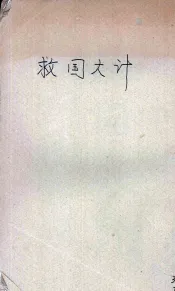 救国大计